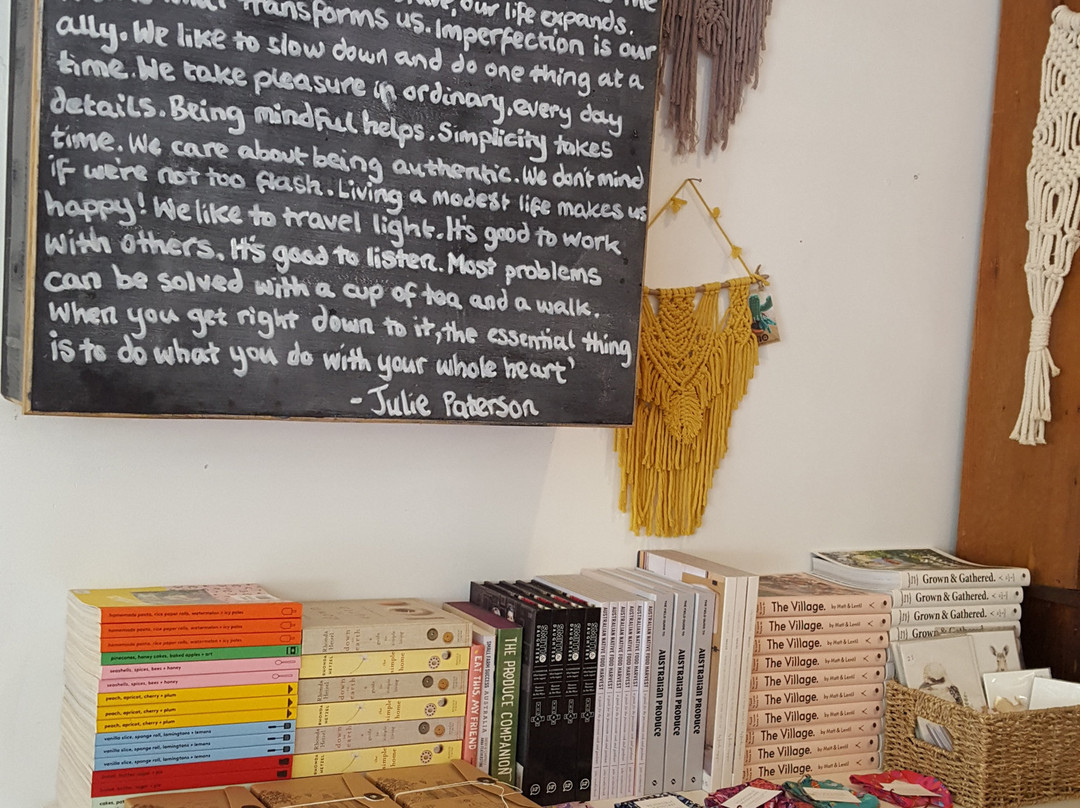 our life expands.
transforms us. Imperfection is our
ally. We like to slow down and do one thing at a
time. We take pleasure in ordinary, every day
details. Being mindful helps. Simplicity takes
time. We care about being authentic. We don't mind
if we're not too flash. Living a modest life makes us
happy! We like to travel light. It's good to work
with others. It's good to listen. Most problems
can be solved with a cup of tea and a walk.
When you get right down to it, the essential thing
is to do what you do with your whole heart'
- Julie Paterson
homemade pasta, rice paper rolls, watermelon + icy poles
homemade pasta, rice paper rolls, watermelon + icy poles
homemade pasta, rice paper rolls, watermelon + icy poles
pinecones, honey cakes, baked apples + art
seashells, spices, bees + honey
seashells, spices, bees + honey
peach, apricot, cherry + plum
peach, apricot, cherry + plum
peach, apricot, cherry + plum
vanilla slice, sponge roll, lamingtons + lemons
vanilla slice, sponge roll, lamingtons + lemons
vanilla slice, sponge roll, lamingtons + lemons
EAT THIS, MY FRIEND
THE PRODUCE COMPANION
AUSTRALIAN NATIVE FOOD HARVEST
AUSTRALIAN NATIVE FOOD HARVEST
AUSTRALIAN NATIVE FOOD HARVEST
AUSTRALIAN NATIVE FOOD HARVEST
THE FIELD GUIDE TO AUSTRALIAN PRODUCE
THE FIELD GUIDE TO AUSTRALIAN PRODUCE
THE FIELD GUIDE TO AUSTRALIAN PRODUCE
The Village. by Matt & Lentil
The Village. by Matt & Lentil
The Village. by Matt & Lentil
The Village. by Matt & Lentil
The Village. by Matt & Lentil
The Village. by Matt & Lentil
The Village. by Matt & Lentil
The Village. by Matt & Lentil
The Village. by Matt & Lentil
The Village. by Matt & Lentil
Grown & Gathered.
Grown & Gathered.
Grown & Gathered.
Grown & Gathered.